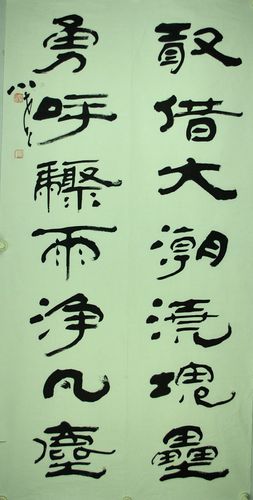 敢借大潮澆塊壘
勇呼驟雨淨凡塵